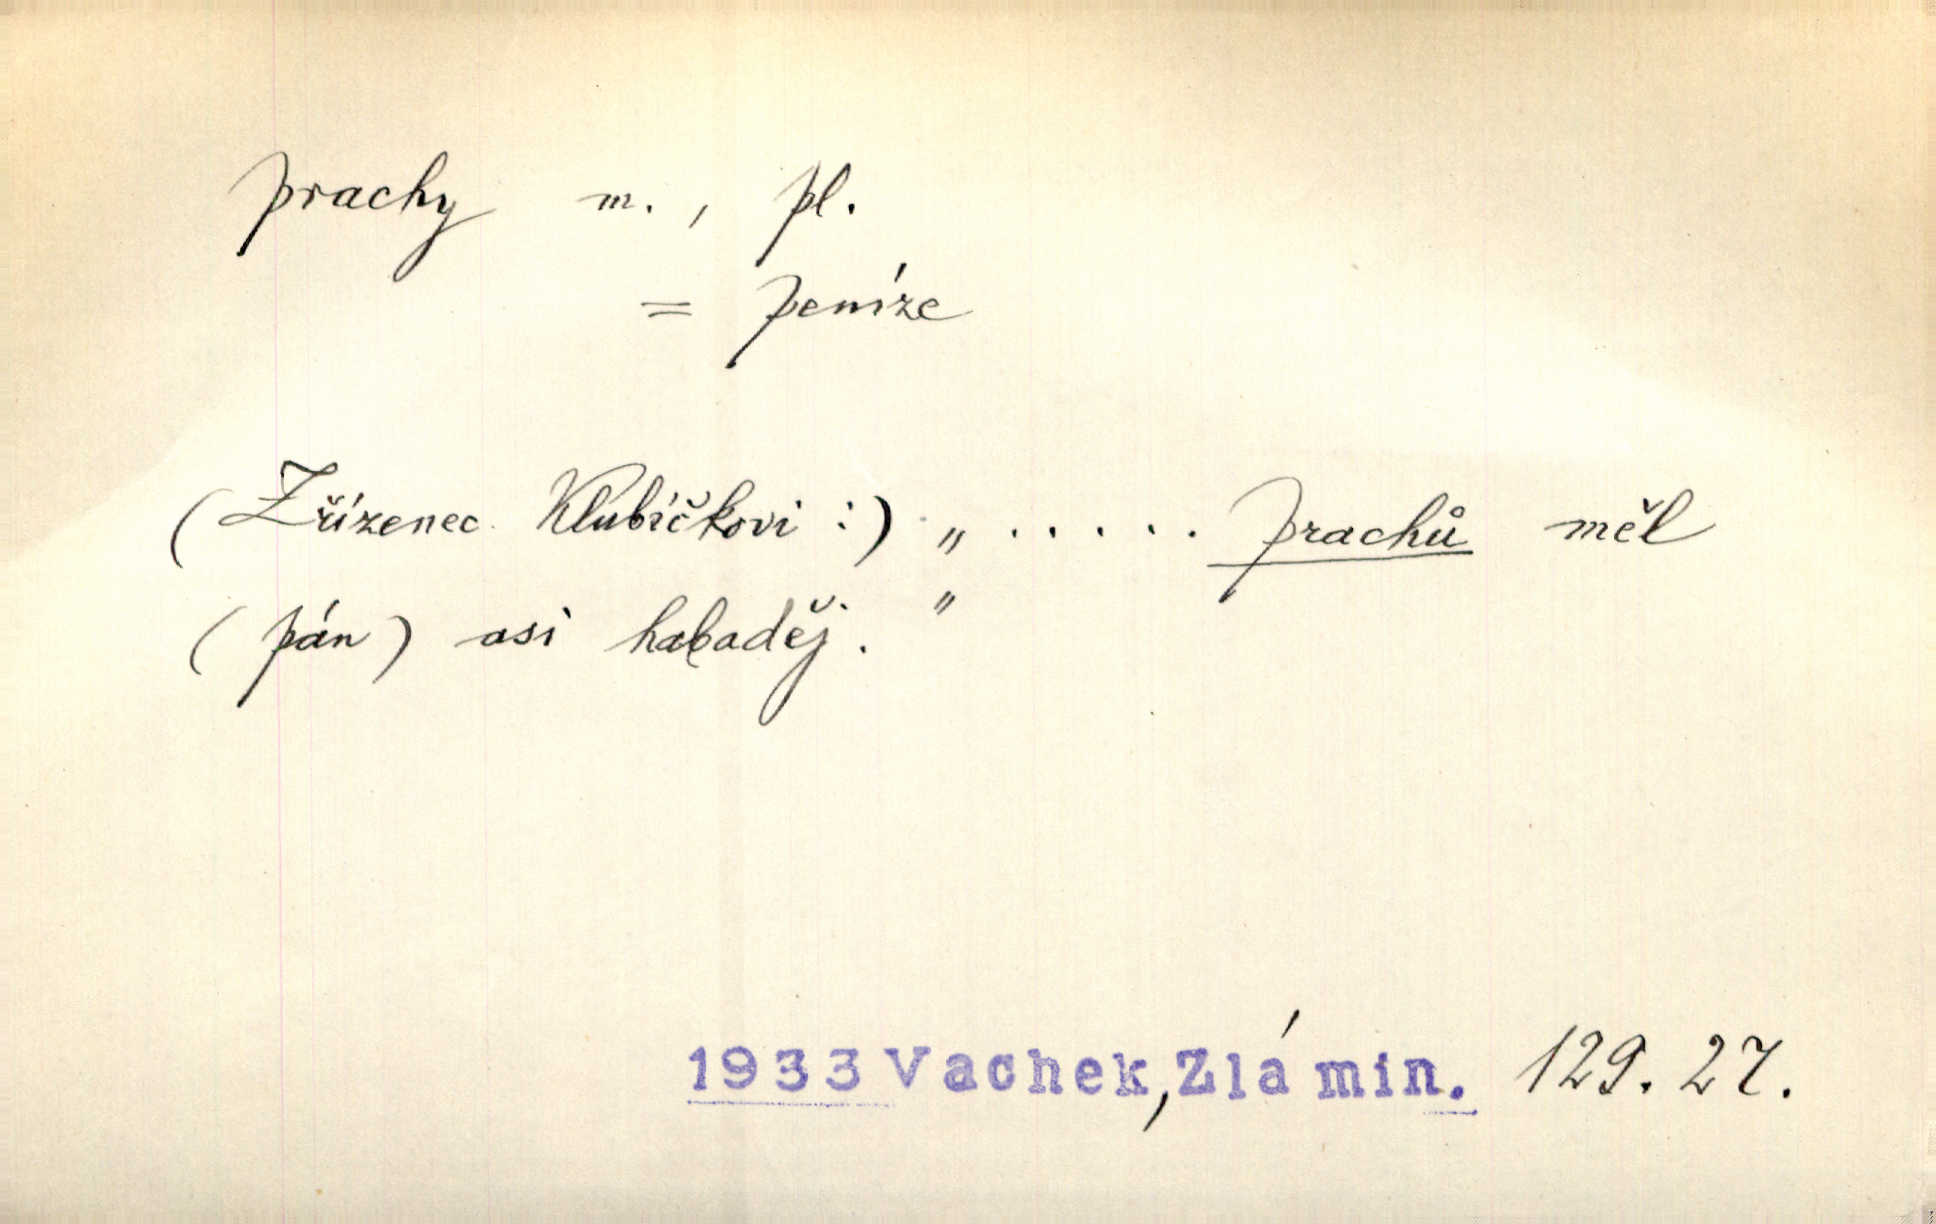 prachy m., pl.
= peníze
(Zřízenec Klubíčkovi :) „ ..... prachů měl
(pán) asi habaděj. "
1933 Vachek, Zlá min. 129. 27.